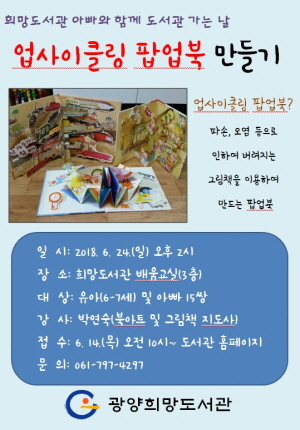 희망도서관 아빠와 함께 도서관 가는 날
업사이클링 팝업북 만들기
업사이클링 팝업북?
파손, 오염 등으로
인하여 버려지는
그림책을 이용하여
만드는 팝업북
일 시: 2018. 6. 24.(일) 오후 2시
장 소: 희망도서관 배움교실(3층)
대 상: 유아(6-7세) 및 아빠 15쌍
강 사: 박연숙(북아트 및 그림책 지도사)
접 수: 6. 14.(목) 오전 10시~ 도서관 홈페이지
문 의: 061-797-4297
광양희망도서관